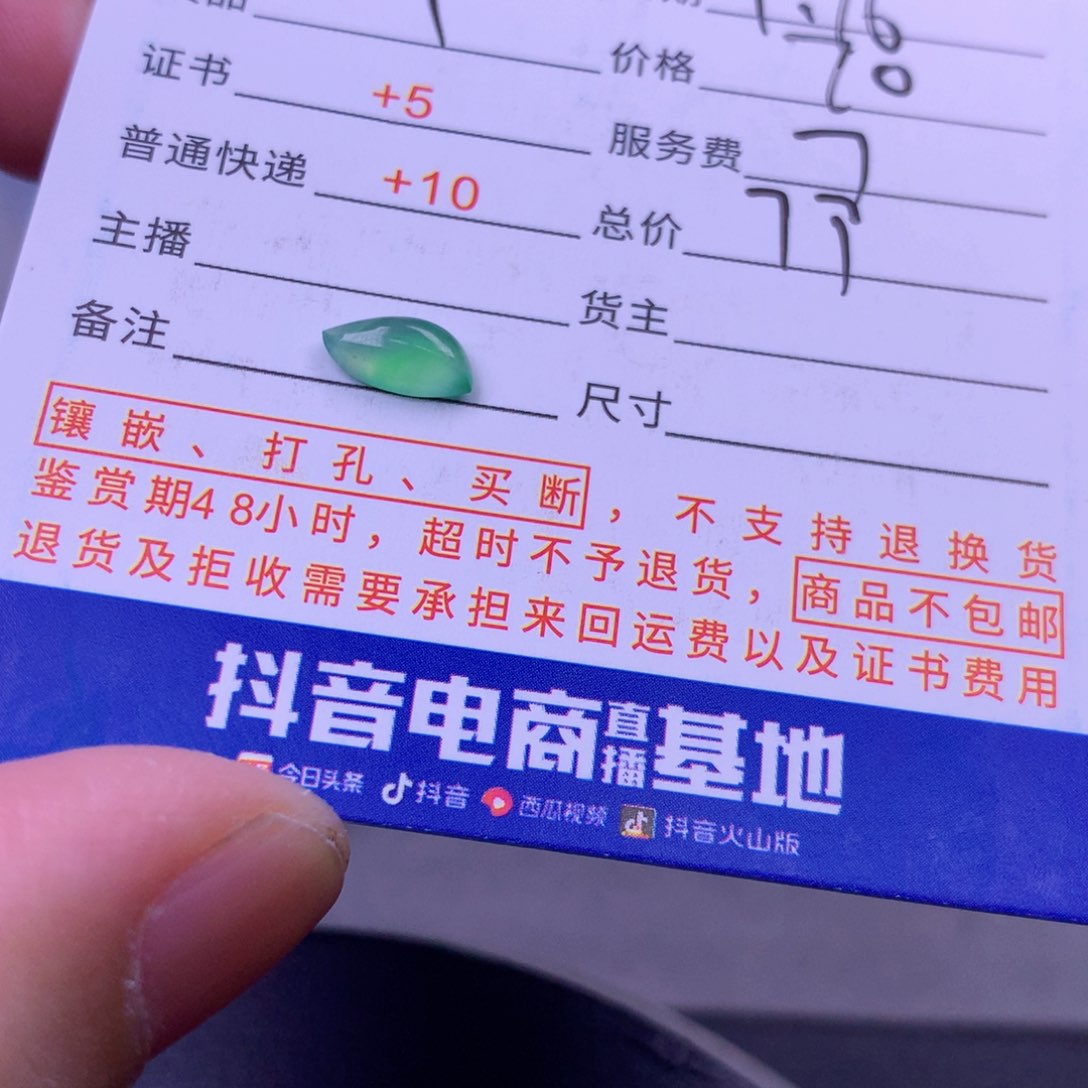 证书 +5 价格 70
普通快递 +10 服务费 7
主播 总价 77
备注 货主
尺寸
镶嵌、打孔、买断，不支持退换货
鉴赏期48小时，超时不予退货，商品不包邮
退货及拒收需要承担来回运费以及证书费用
抖音电商直播基地
今日头条 抖音 西瓜视频 抖音火山版